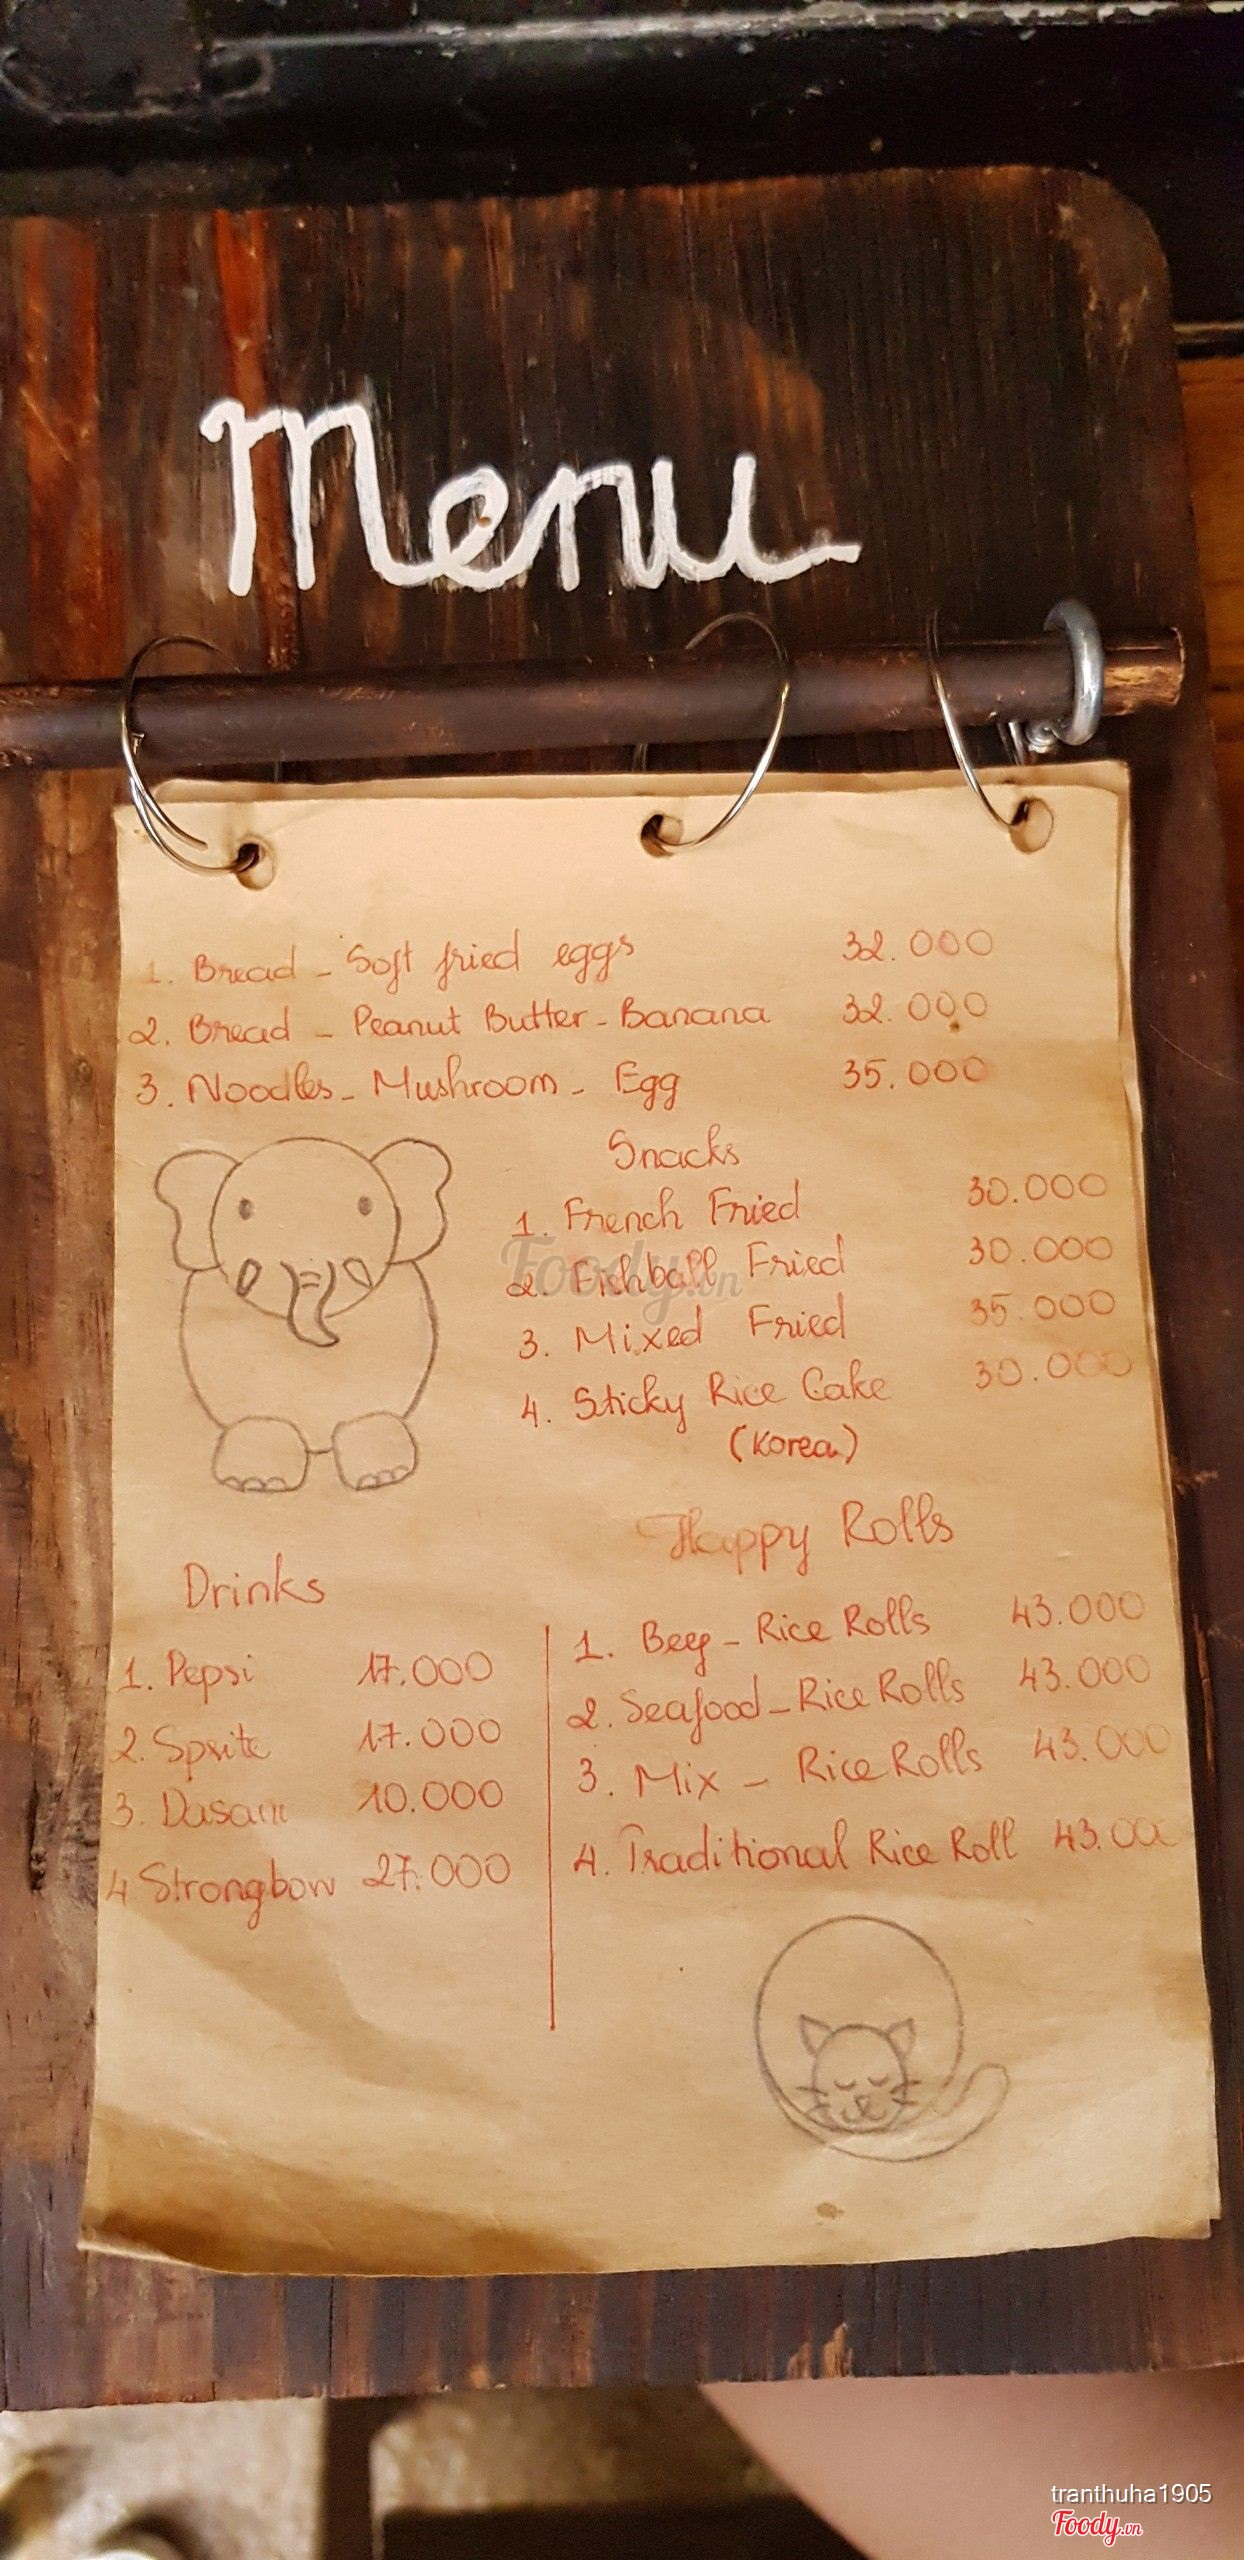 Menu
1. Bread - Soft fried eggs 32.000
2. Bread - Peanut Butter - Banana 32.000
3. Noodles - Mushroom - Egg 35.000
Snacks
1. French Fried 30.000
2. Fishball Fried 30.000
3. Mixed Fried 35.000
4. Sticky Rice Cake 30.000
(Korea)
Foody.vn
Happy Rolls
1. Beef - Rice Rolls 43.000
2. Seafood - Rice Rolls 43.000
3. Mix - Rice Rolls 43.000
4. Traditional Rice Roll 43.000
Drinks
1. Pepsi 17.000
2. Sprite 17.000
3. Dasani 10.000
4 Strongbow 27.000
tranthuha1905
Foody.vn